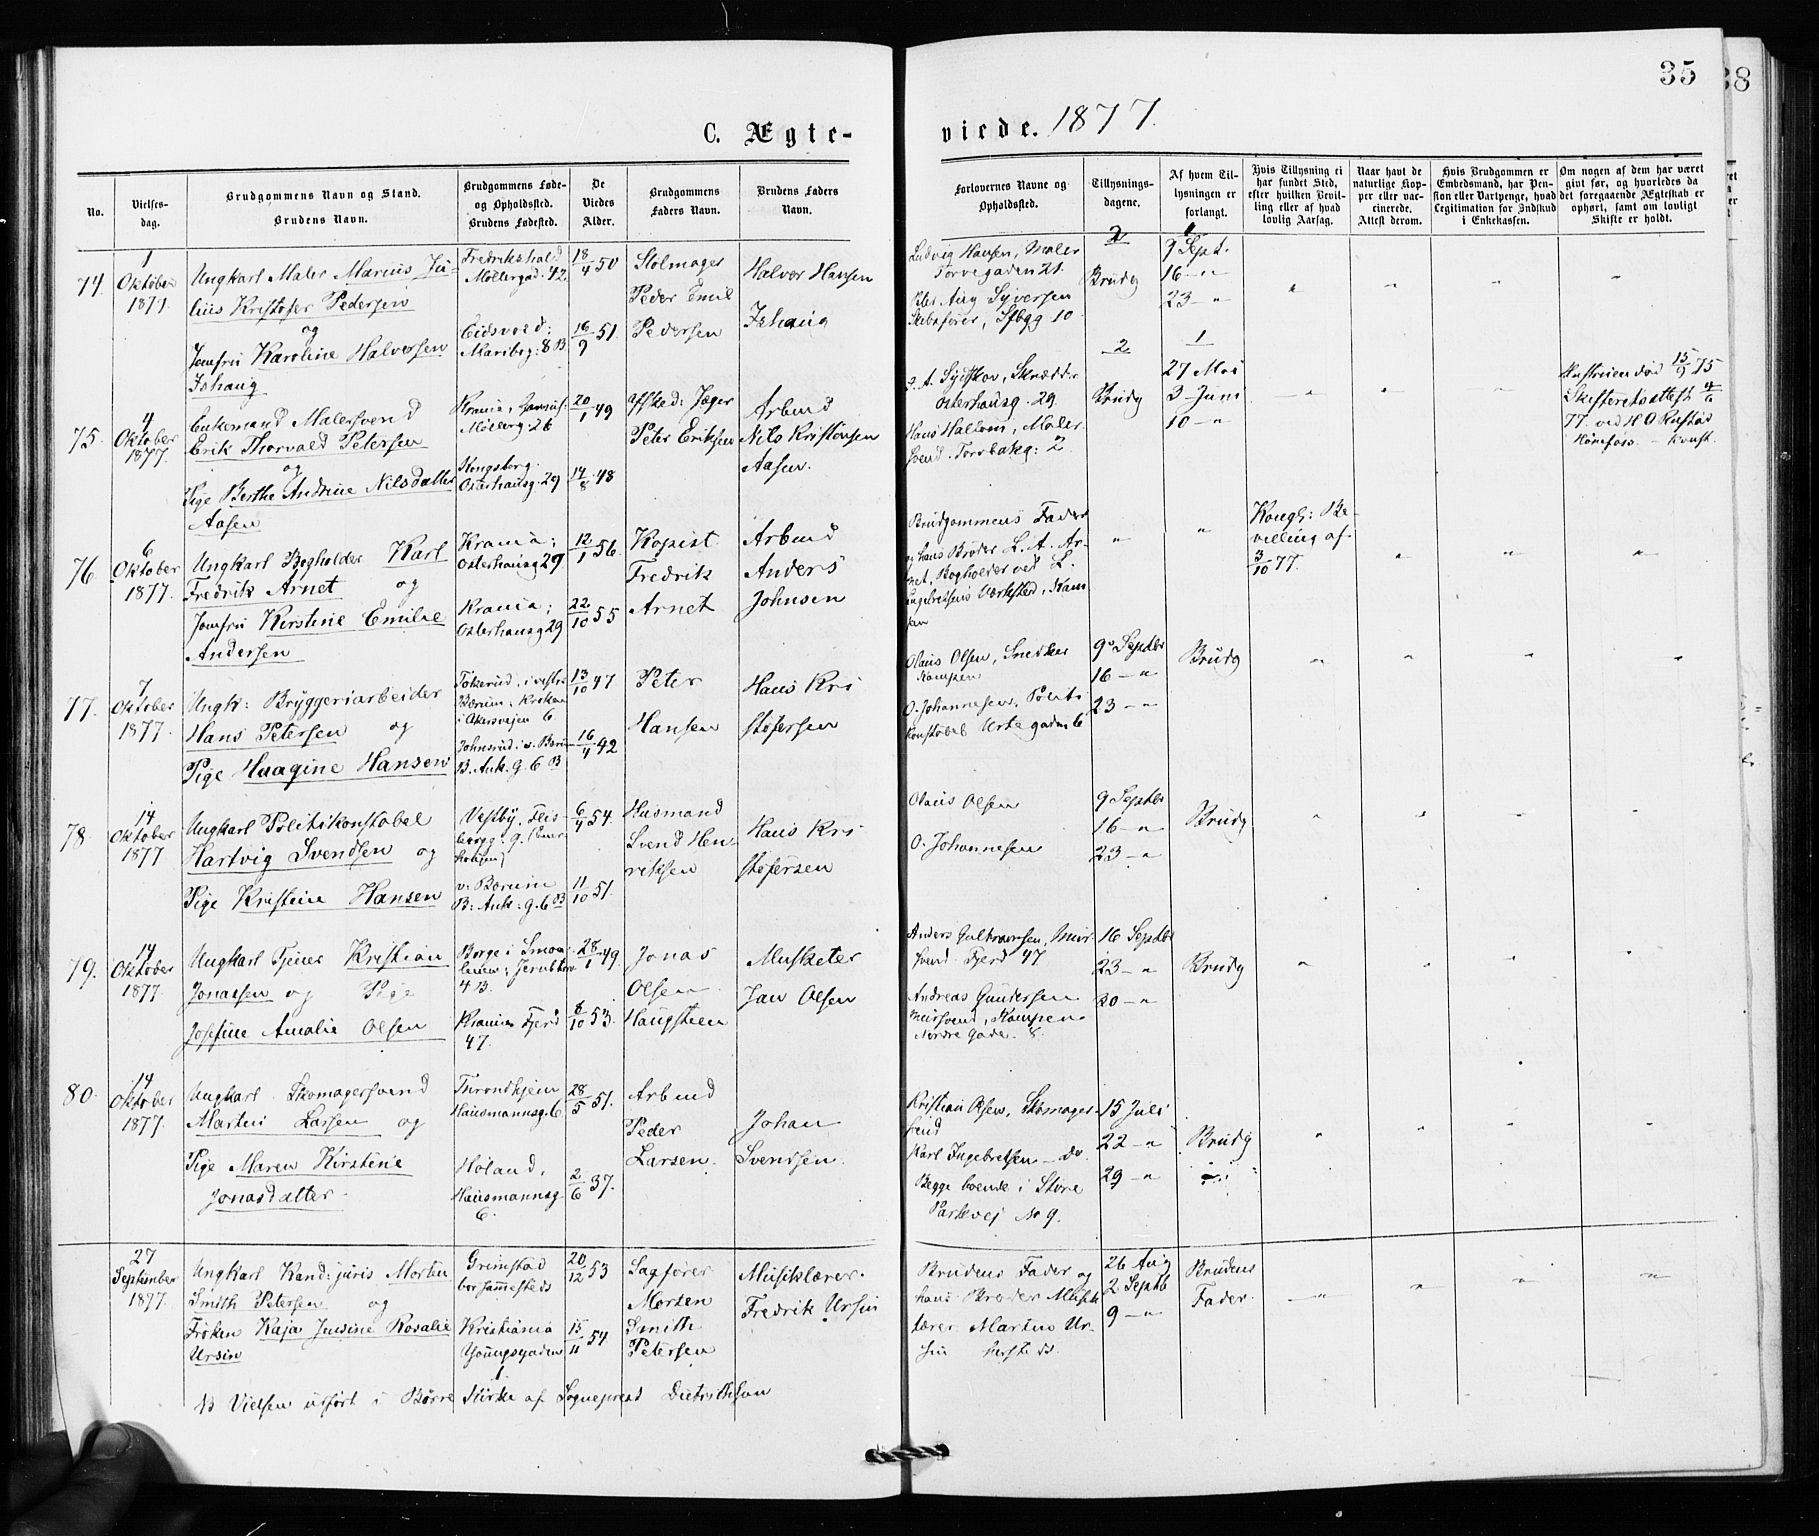 35
38
C. Ægte-
viede. 1877.
No.
Vielses-
dag.
Brudgommens Navn og Stand.
Brudens Navn.
Brudgommens Føde-
og Opholdssted.
Brudens Fødested.
De
Viedes
Alder.
Brudgommens
Faders Navn.
Brudens Faders
Navn.
Forlovernes Navne og
Opholdssted.
Tillysnings-
dagene.
Af hvem Til-
lysningen er
forlangt.
Hvis Tillysning ei
har fundet Sted,
efter hvilken Bevil-
ling eller af hvad
lovlig Aarsag.
Naar havt de
naturlige Kop-
per eller vac-
cinerede.
Attest derom.
Hvis Brudgommen er
Embedsmand, har Pen-
sion eller Vartpenge, hvad
Legitimation for Indskud
i Enkekassen.
Om nogen af dem har været
gift før, og hvorledes da
det foregaaende Ægteskab er
ophørt, samt om lovligt
Skifte er holdt.
74.
1
Oktober
1877.
Ungkarl Maler Marius Ju-
lius Kristofer Pedersen
og
Jomfru Karoline Halvorsen
Ishaug
Fredrikshald
Møllergad: 42
Eidsvold;
Maribog: 8 B
18/4 50
16/9 51.
Stolmager
Peder Emil
Pedersen
Halvor Hansen
Ishaug
Ludvig Hansen, Maler
Torvegaden 21.
Aug Syversen
Skibsfører, 10.
2
Brudg
1
9 Sept.
16 – "
23 – "
75.
4
Oktober
1877.
Enkemand Malersvend
Erik Thorvald Petersen
og
Pige Berthe Andrine Nilsdatter
Aasen
Krania,
Møllerg. 26
Kongsberg.
Osterhausg. 29
20/1 49
14/8 48
Afsked: Jæger
Peter Eriksen
Arbmd
Nils Kristensen
Aasen.
Skrædder
Osterhausg. 29
Hans Hallum, Maler
svend. Torvbakg: 2
2
Brudg
1
27 Mai
3 Juni
10 – "
Hustruen død 15/9 75
Skifteretsattest 4/6
77. ved H O Rustad
Hønefoss – konst.
76
6
Oktober
1877.
Ungkarl Bogholder Karl
Fredrik Arnet og
Jomfru Kirstine Emilie
Andersen
Krania;
Osterhausg 29
Krania;
Osterhausg 29
12/1 56
22/10 55
Kopist
Fredrik
Arnet
Arbmd
Anders
Johnsen
Brudgommens Fader
og hans Broder L. A. Ar-
net, Bogholder ved L.
Ingebretsens Værksted, Kam
pen
Kongl: Be-
villing af
3/10 77.
77.
7
Oktober
1877.
Ungk: Bryggeriarbeider
Hans Petersen og
Pige Haagine Hansen
Tokerud, i vestre
Bærum;
i Akersvejen 6
Johnsrud i v. Bærum
B. Ank. g. 6 B
13/10 47
16/4 42
Peter
Hansen
Hans Kri
stofersen
Olaus Olsen, Snedker
Kampen
O. Johannesen, Politi
konstabel Urtegaden 6
9 Septbr
16 – "
23 – "
Brudg
78.
14
Oktober
1877
Ungkarl Politikonstabel
Hartvig Svendsen og
Pige Kristine Hansen
Vestby, Flis
bergg: 9.
v. Bærum
B: Ank: g. 6 B
6/4 54.
11/10 51.
Husmand
Svend Hen-
riksen
Hans Kri
stofersen
Olaus Olsen
O. Johannesen
9 Septbr
16 – "
23 – "
Brudg
79.
14
Oktober
1877.
Ungkarl Tjener Kristian
Jonassen og Pige
Josefine Amalie Olsen
Borge i Smaa-
lenene;
4 B.
Krania Fjerd
47.
28/1 49
8/10 53.
Jonas
Olsen
Haugsteen
Musketer
Jan Olsen
Anders Mur-
svend. Fjerd 47
Andreas Gundersen
Mursvend, Kampen
Nordre Gade. 8.
16 Septbr
23 – "
30 – "
Brudg
80.
14
Oktober
1877.
Ungkarl Skomagersvend
Martin Larsen og
Pige Maren Kirstine
Jonasdatter.
Throndhjem
Hausmannsg. 6
Høland,
Hausmannsg.
6.
28/5 51.
2/6 37.
Arbmd
Peder
Larsen.
Johan
Svendsen.
Kristian Olsen, Skomager-
svend
Karl Ingebretsen – do
Begge boende i Store
Parkvej No 9.
15 Juli
22 – "
29 – "
Brudg
27
September
1877.
Ungkarl Kand: juris Morten
Smith Petersen og
Frøken Kaja Jusine Rosalie
Ursin
Grimstad
bor sammesteds
Kristiania
Youngsgaden
1
20/12 53
15/11 54
Sagfører
Morten
Smith
Petersen
Musiklærer
Fredrik Ursin
Brudens Fader og
hans Broder Musik
lærer Martin Ur-
sin herstds.
26 Aug
2 Septb
9 – "
Brudens
Fader.
NB Vielsen utført i Borre Kirke af Sogneprest Dietrichson